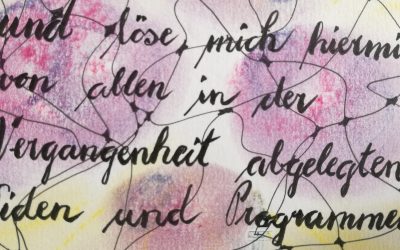 und löse mich hiermi
von allen in der
Vergangenheit abgelegten
Eiden und Programme